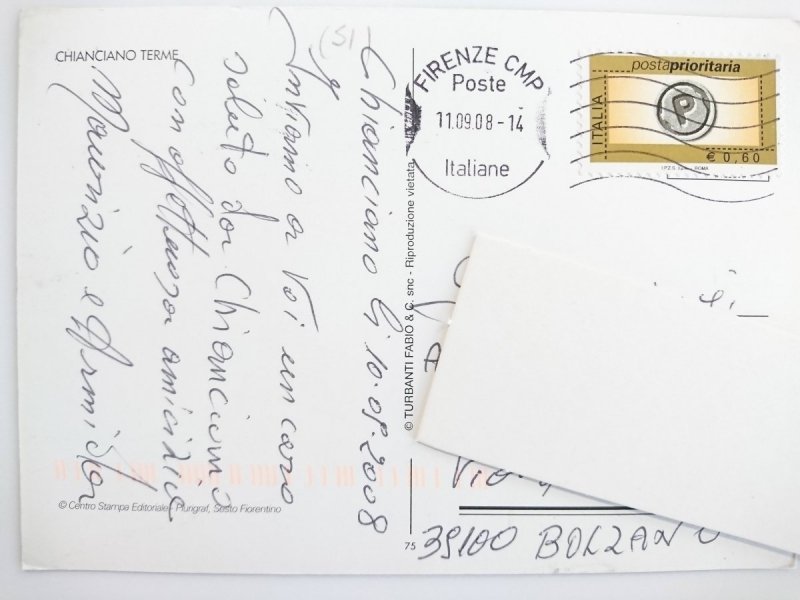 CHIANCIANO TERME
(SI)
Chianciano lì 10.09.2008
Inviamo a Voi un caro
saluto da Chianciano
con affettuosa amicizia
Maurizio e Armida
© Centro Stampa Editoriale - Plurigraf, Sesto Fiorentino
© TURBANTI FABIO & C. snc - Riproduzione vietata
75
FIRENZE CMP
Poste
11.09.08-14
Italiane
postaprioritaria
ITALIA
P
€ 0,60
Via
39100 BOLZANO